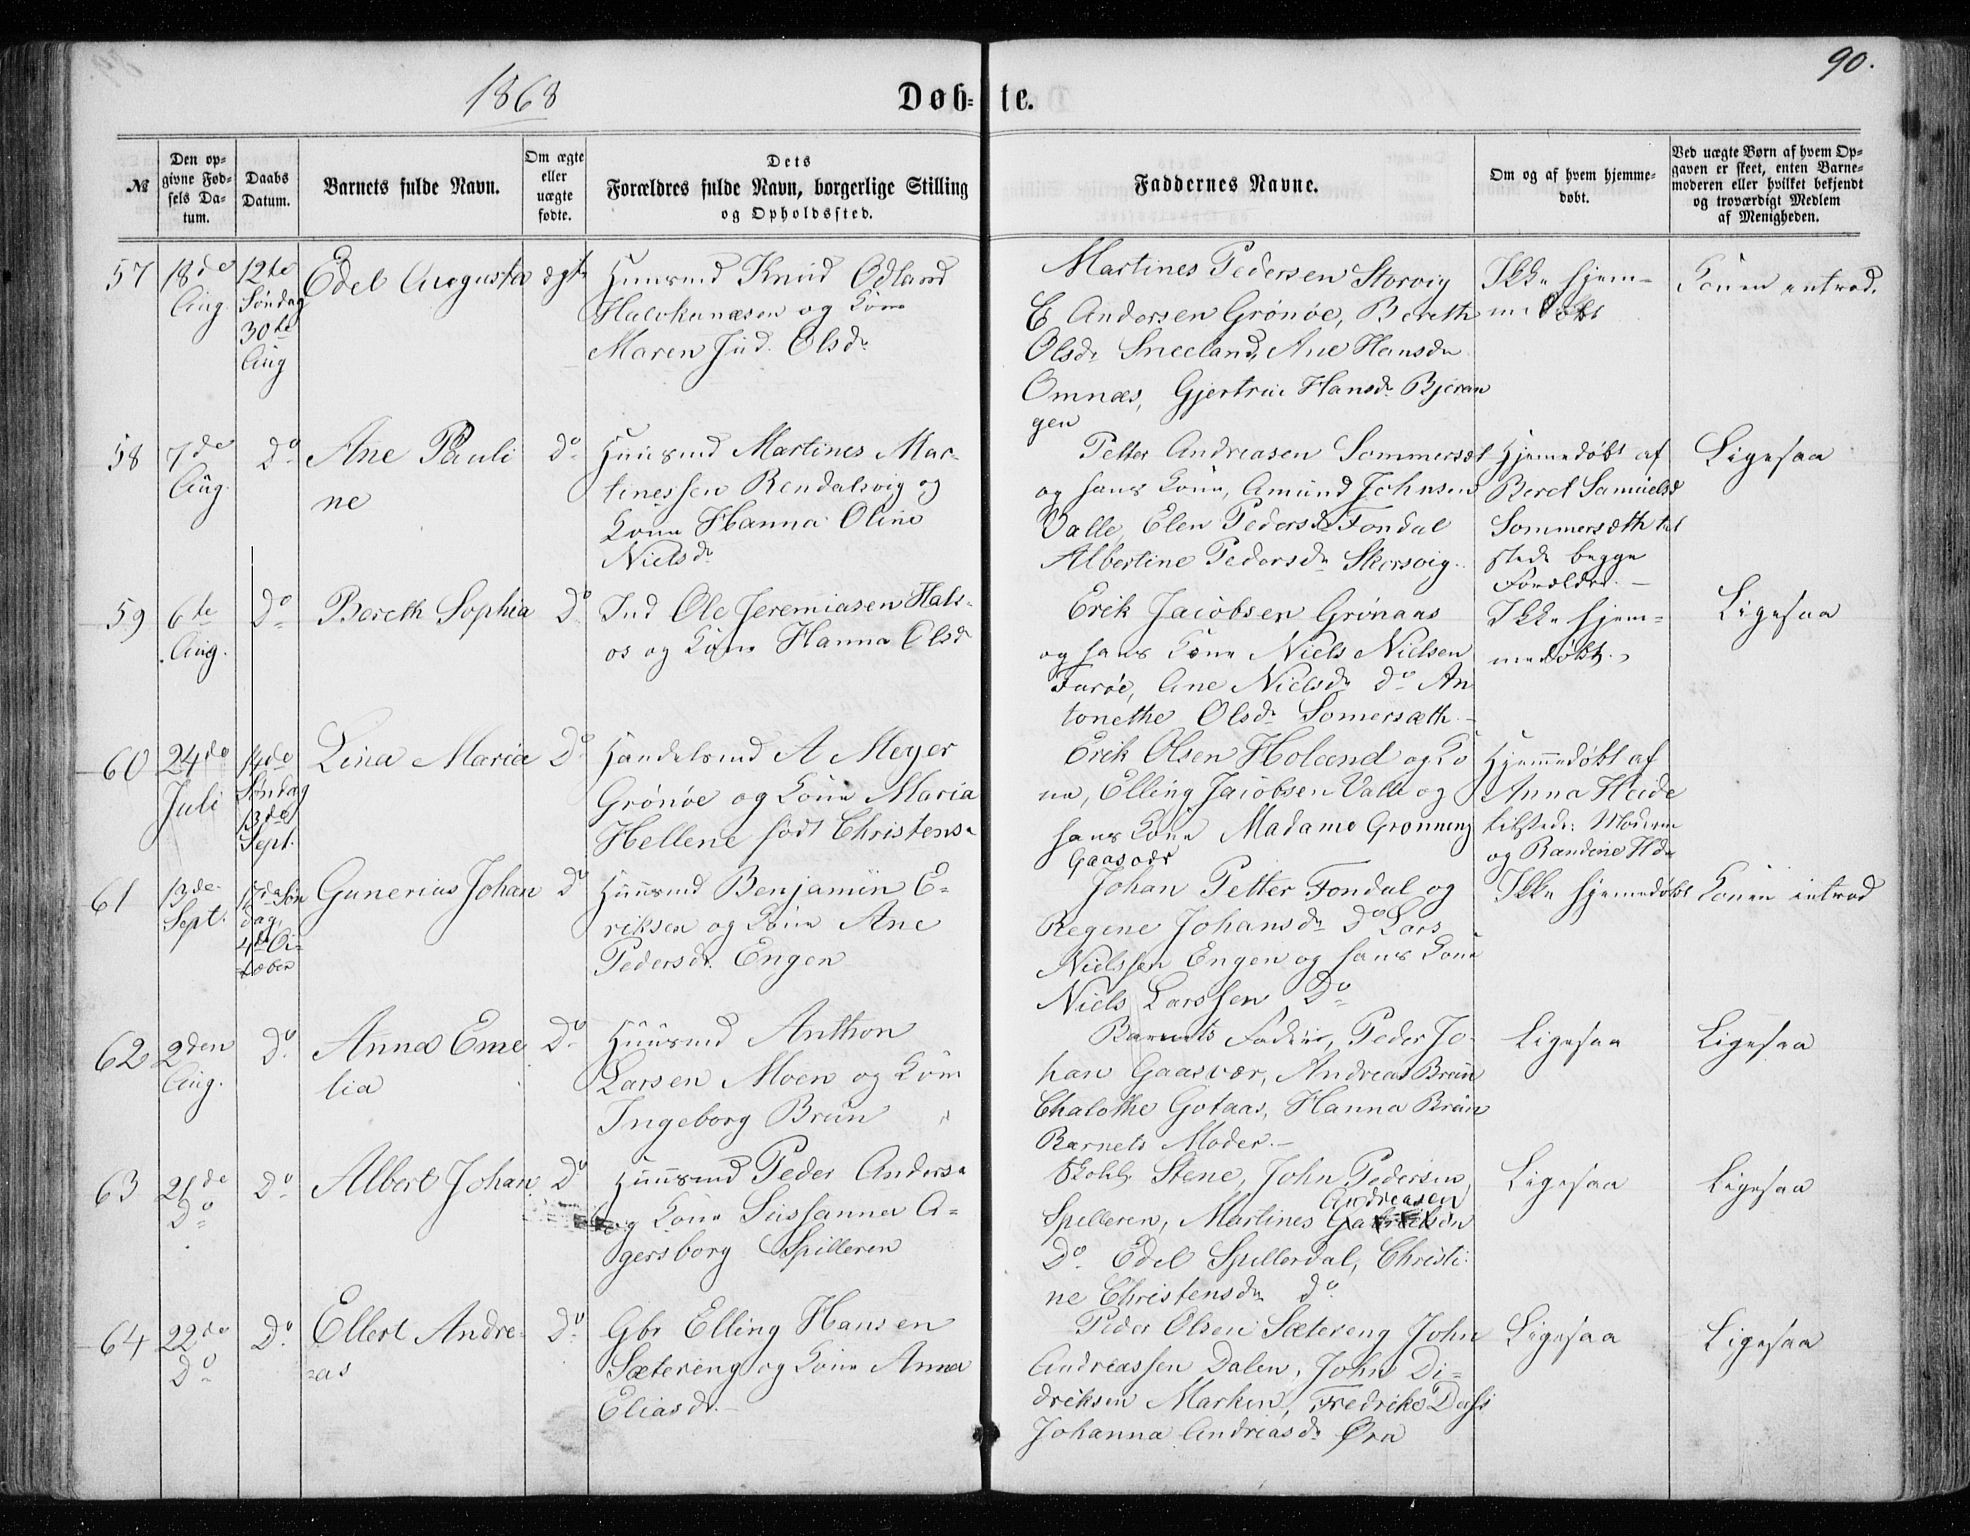 90.
1868
Døb- te.
№
Den op-
givne Fød-
sels Da-
tum.
Daabs
Datum.
Barnets fulde Navn.
Om ægte
eller
uægte
fødte.
Dets
Forældres fulde Navn, borgerlige Stilling
og Opholdssted.
Faddernes Navne.
Om og af hvem hjemme-
døbt.
Ved uægte Børn af hvem Op-
gaven er skeet, enten Barne-
moderen eller hvilket bekjendt
og troværdigt Medlem
af Menigheden.
57
18de
Aug.
12te
Søndag
30te
Aug
Edel Augusta
ægte
Huusmd Knud Odland
Halvkanæsen og Kone
Maren Jud. Olsdr
Martines Pedersen Storvig
E Andersen Grønøe, Bereth
Olsdr Sneeland, Ane Hansdr
Omnæs, Gjertrui Hansdr Bjeran
gen
Ikke hjem-
medøbt
Konen introd.
58
7de
Aug.
Do
Ane Pauli
ne
Do
Huusmd Martines Mar-
tinessen Rendalsvig og
Kone Hanna Oline
Nielsdr
Petter Andreasen Sommersæt
og hans Kone, Amund Johnsen
Valle, Elen Pedersdr Fondal
Albertine Pedersdr Storvig.
Hjemedøbt af
Beret Samuelsd
Sommersæth til
stede begge
Forældre. -
Ligesaa
59
6te
Aug.
Do
Bereth Sophia
Do
Ind Ole Jeremiasen Hals-
os og Kone Hanna Olsd
Erik Jacobsen Grønaas
og hans Kone Niels Nielsen
Farøe, Ane Nielsdr Do An
tonethe Olsdr Somersæth. -
Ikke hjem-
medøbt.
Ligesaa
60
24de
Juli
14de
Søndag
13de
Sept.
Lina Maria
Do
Handelsmd A Meyer
Grønøe og Kone Maria
Hellene født Christens.
Erik Olsen Holand og Ko
ne, Elling Jacobsen Valle og
hans Kone Madame Grønning
Gaasvær
Hjemmedøbt af
Anna Heide
tilstede: Moderen
og Randine Hdr
61
13de
Sept.
17de Søn
dag
4de Oc-
tober
Gunerius Johan
Do
Huusmd Benjamin E-
riksen og Kone Ane
Pedersdr. Engen
Johan Petter Fondal og
Regine Johansdr Do Lars
Nielssen Engen og hans Kone
Niels Larssen Do
Ikke hjemedøbt
Konen introd
62
2den
Aug.
Do
Anna Eme
lia
Do
Huusmd Anthon
Larsen Moen og Kone
Ingeborg Bruun
Barnets Fader, Peder Jo-
han Gaasvær, Andreas Bruun
Chalothe Gotaas, Hanna Bruun
Barnets Moder. -
Ligesaa
Ligesaa
63
21de
Do
Do
Albert Johan
Do
Huusmd Peder Anders.
og Kone Sussanna A-
gersborg Spilleren
Stene, John Pedersen,
Andreasen
Spilleren, Martines Gabrielsen
Do Edel Spillerdal, Christi-
ne Christensdr do
Ligesaa
Ligesaa
64
22de
Do
Do
Ellert Andre-
as
Do
Gbr Elling Hansen
Sætereng og Kone Anna
Eliasdr. -
Peder Olsen Sætereng John
Andreassen Dalen, John Di-
driksen Marken, Fredrike
Johanna Andreasdr Øra
Ligesaa
Ligesaa